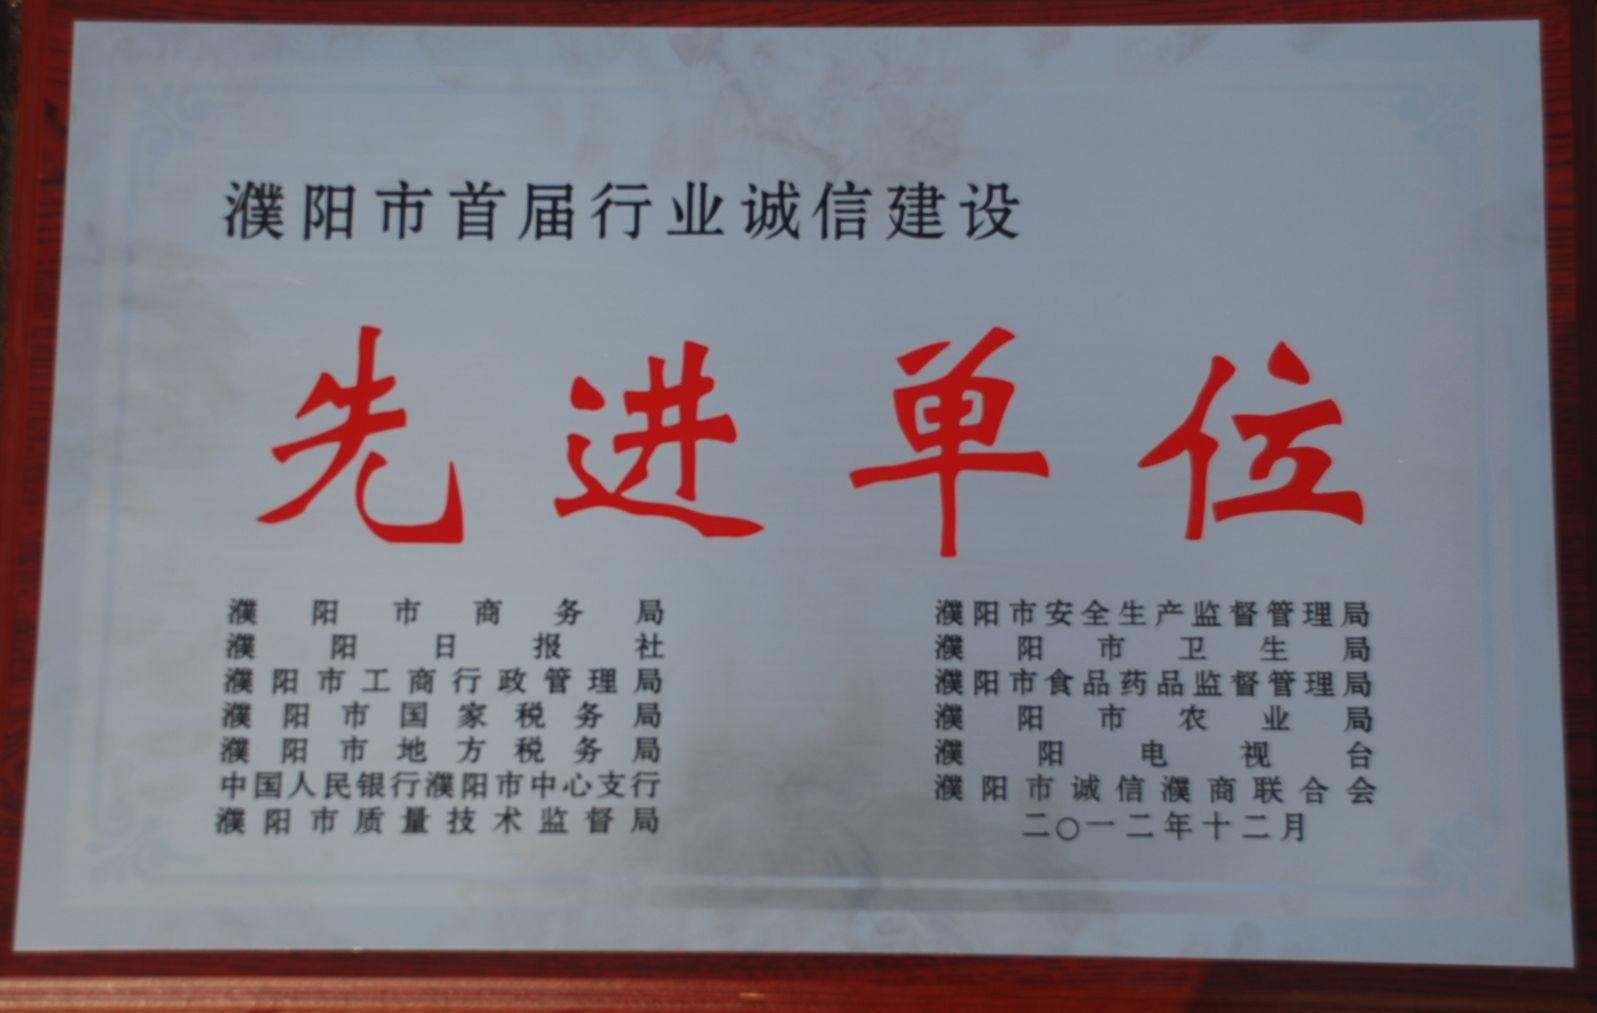 濮阳市首届行业诚信建设
先进单位
濮阳市商务局
濮阳日报社
濮阳市工商行政管理局
濮阳市国家税务局
濮阳市地方税务局
中国人民银行濮阳市中心支行
濮阳市质量技术监督局
濮阳市安全生产监督管理局
濮阳市卫生局
濮阳市食品药品监督管理局
濮阳市农业局
濮阳电视台
濮阳市诚信濮商联合会
二〇一二年十二月